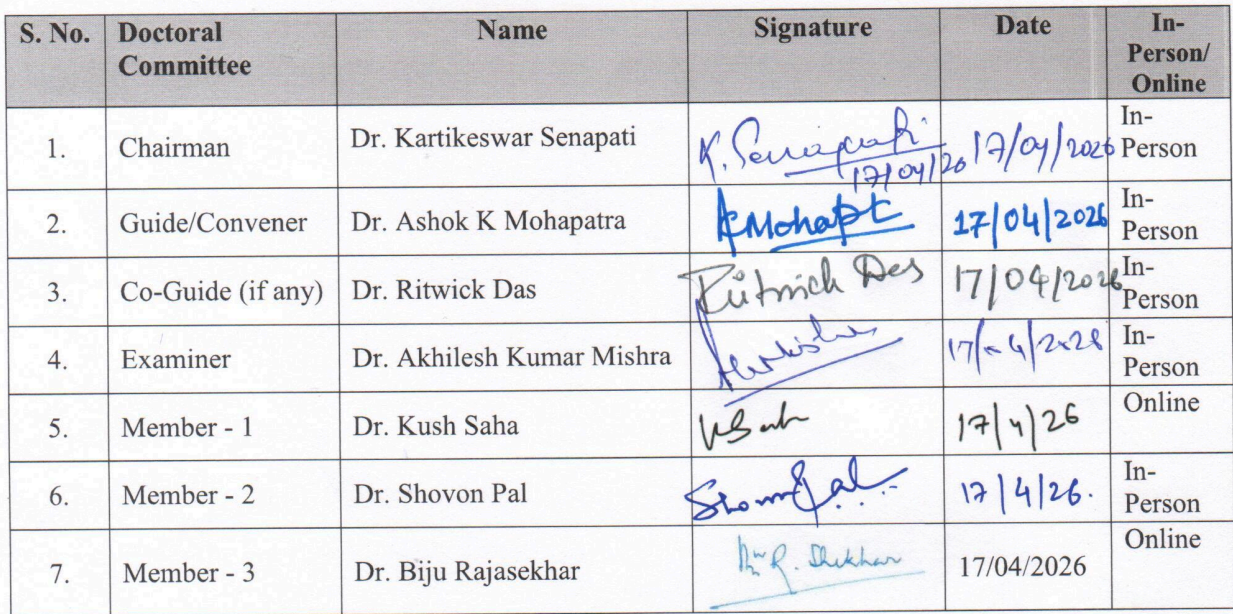 S. No. Doctoral Committee Name Signature Date In-Person/ Online
1. Chairman Dr. Kartikeswar Senapati K. Senapati 17/04/20 17/04/2026 In-Person
2. Guide/Convener Dr. Ashok K Mohapatra AKMohapt 17/04/2026 In-Person
3. Co-Guide (if any) Dr. Ritwick Das Ritwick Das 17/04/2026 In-Person
4. Examiner Dr. Akhilesh Kumar Mishra In-Person
5. Member - 1 Dr. Kush Saha 17/4/26 Online
6. Member - 2 Dr. Shovon Pal Shovon Pal 17/4/26. In-Person
7. Member - 3 Dr. Biju Rajasekhar 17/04/2026 Online